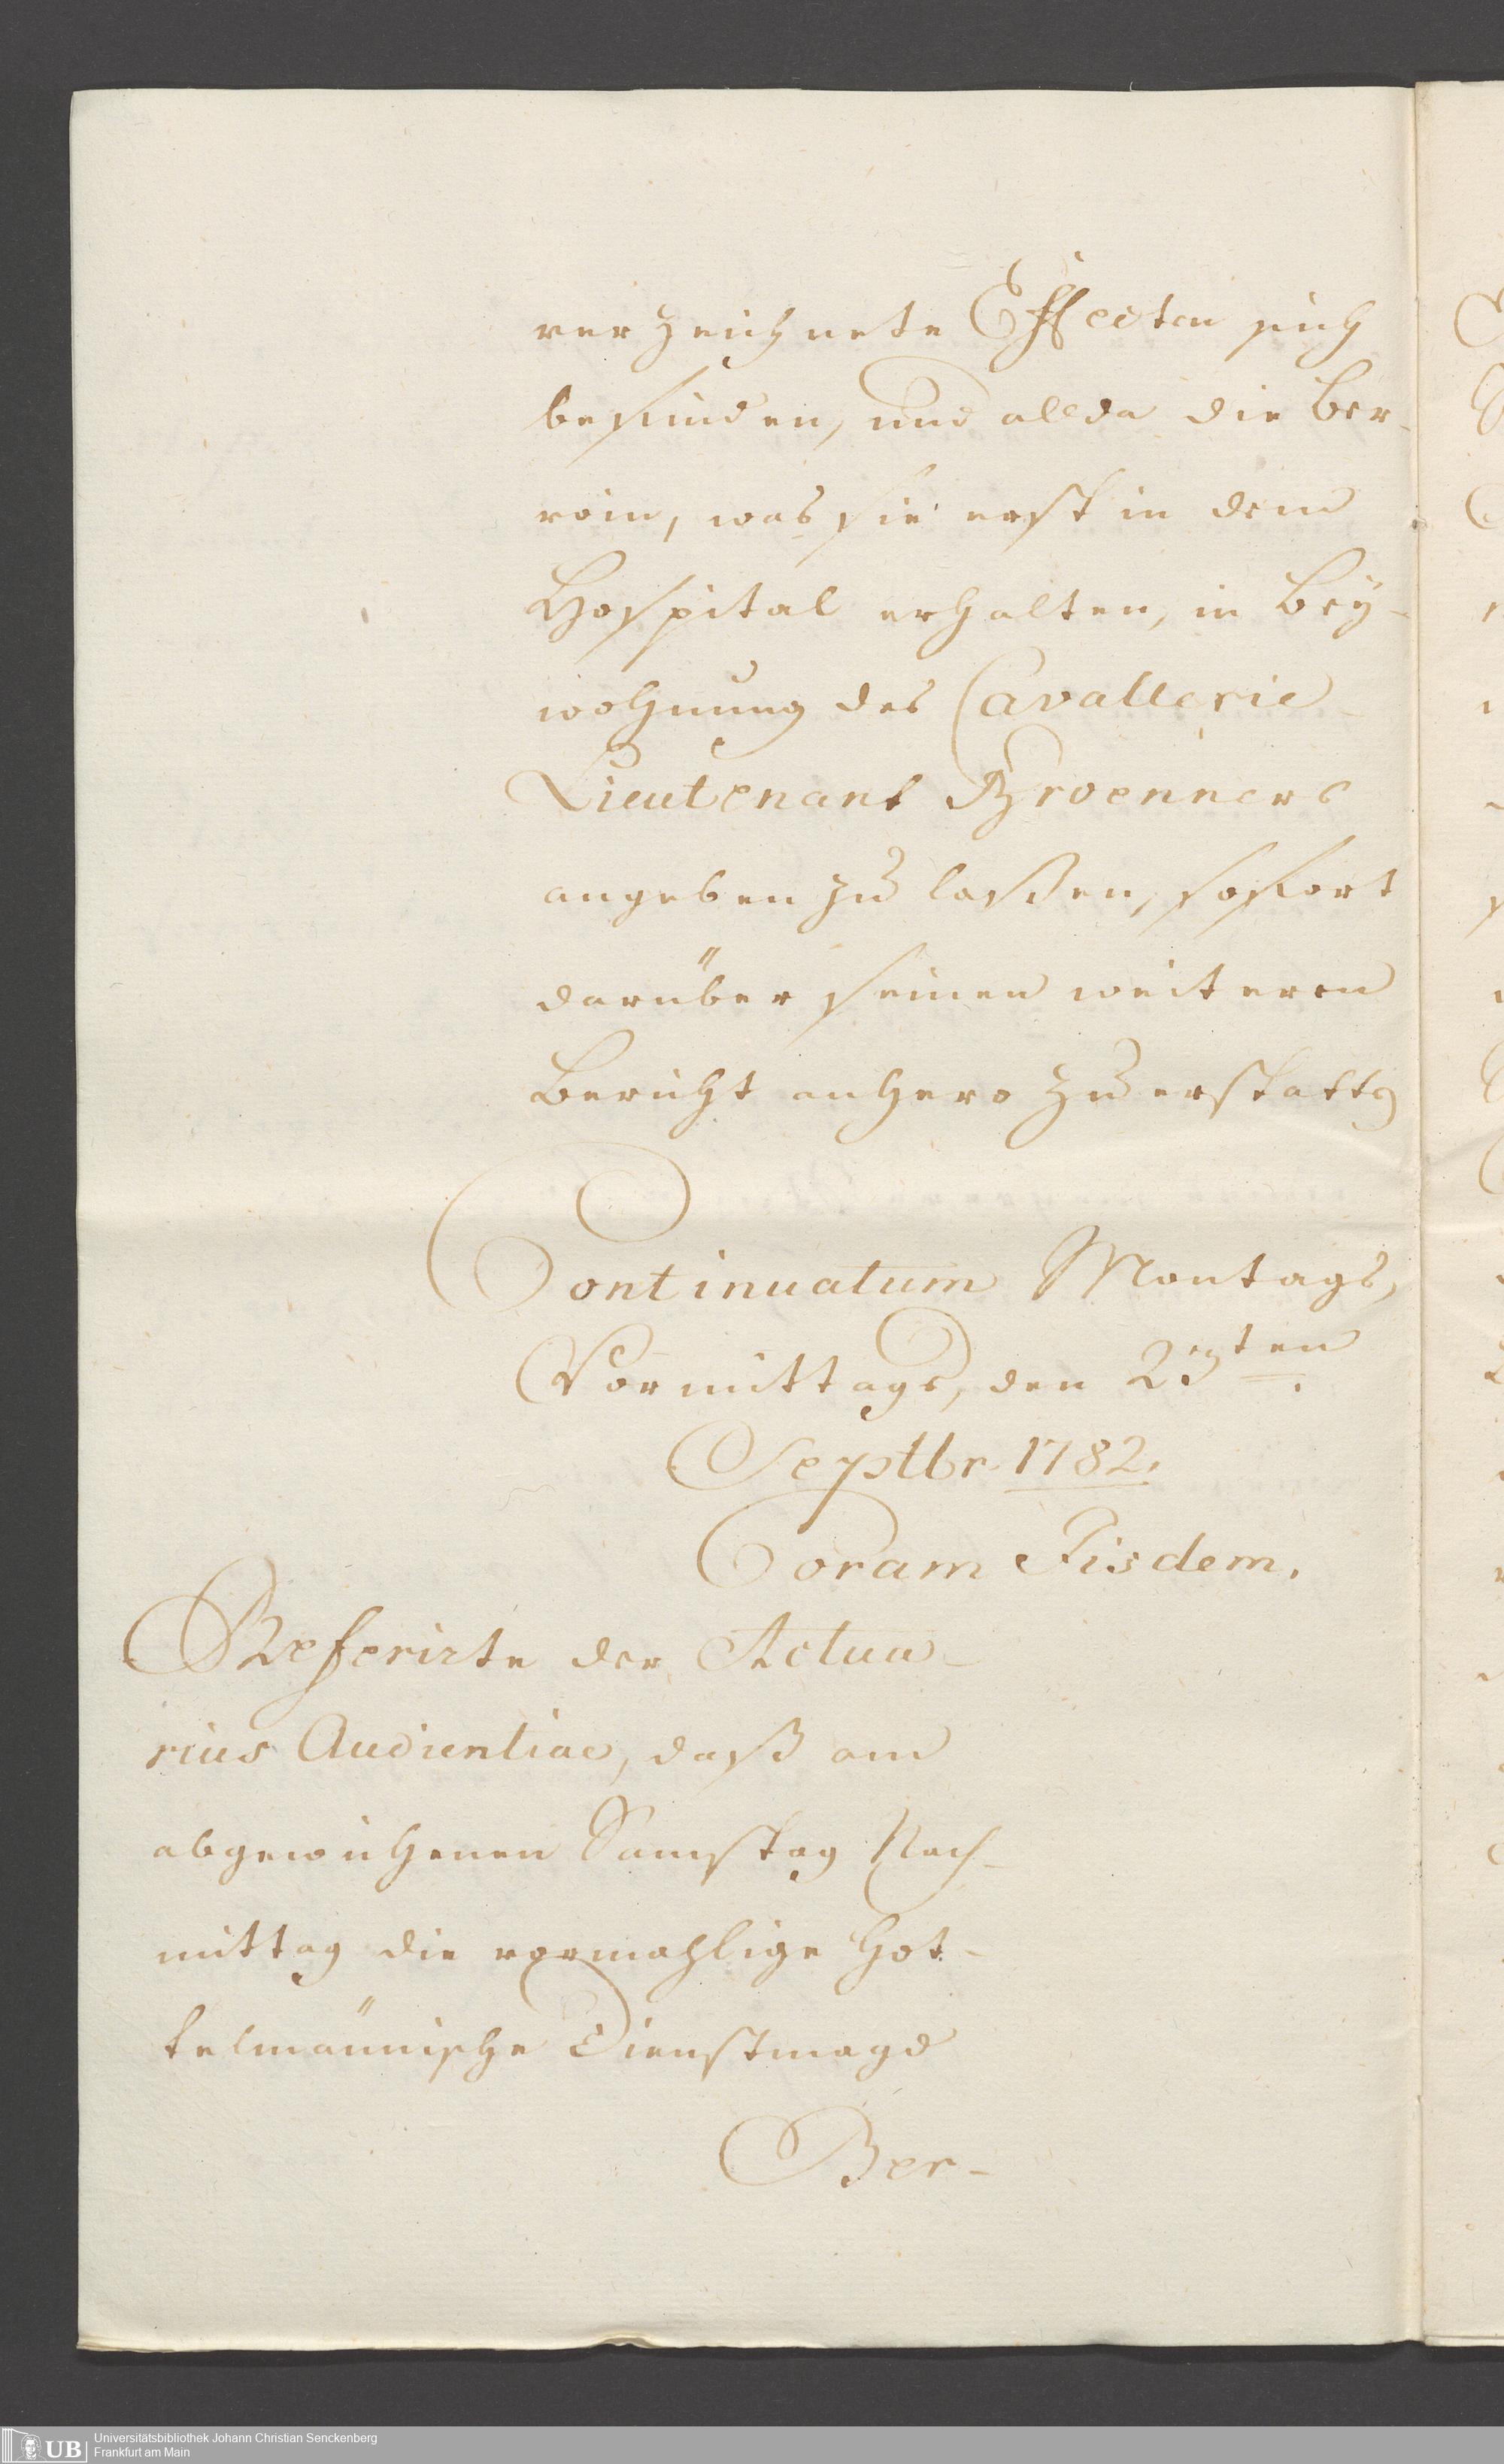 verzeichnete Effecten sich
befinden, und allda die Ber-
roin, was sie erst in dem
Hospital erhalten, in Bey-
wohnung des Cavallerie-
Lieutenant Broenners
angeben zu laßen, sofort
darüber seinen weiteren
Bericht anhero zu erstatten
Continuatum Montags,
Vormittags, den 23ten
Septbr. 1782.
Coram Eisdem.
Referirte der Actua-
rius Audientiae, daß am
abgewichenen Samstag Nach-
mittag die vormahlige Hot-
telmännische Dienstmagd
Ber-
UB
Universitätsbibliothek Johann Christian Senckenberg
Frankfurt am Main